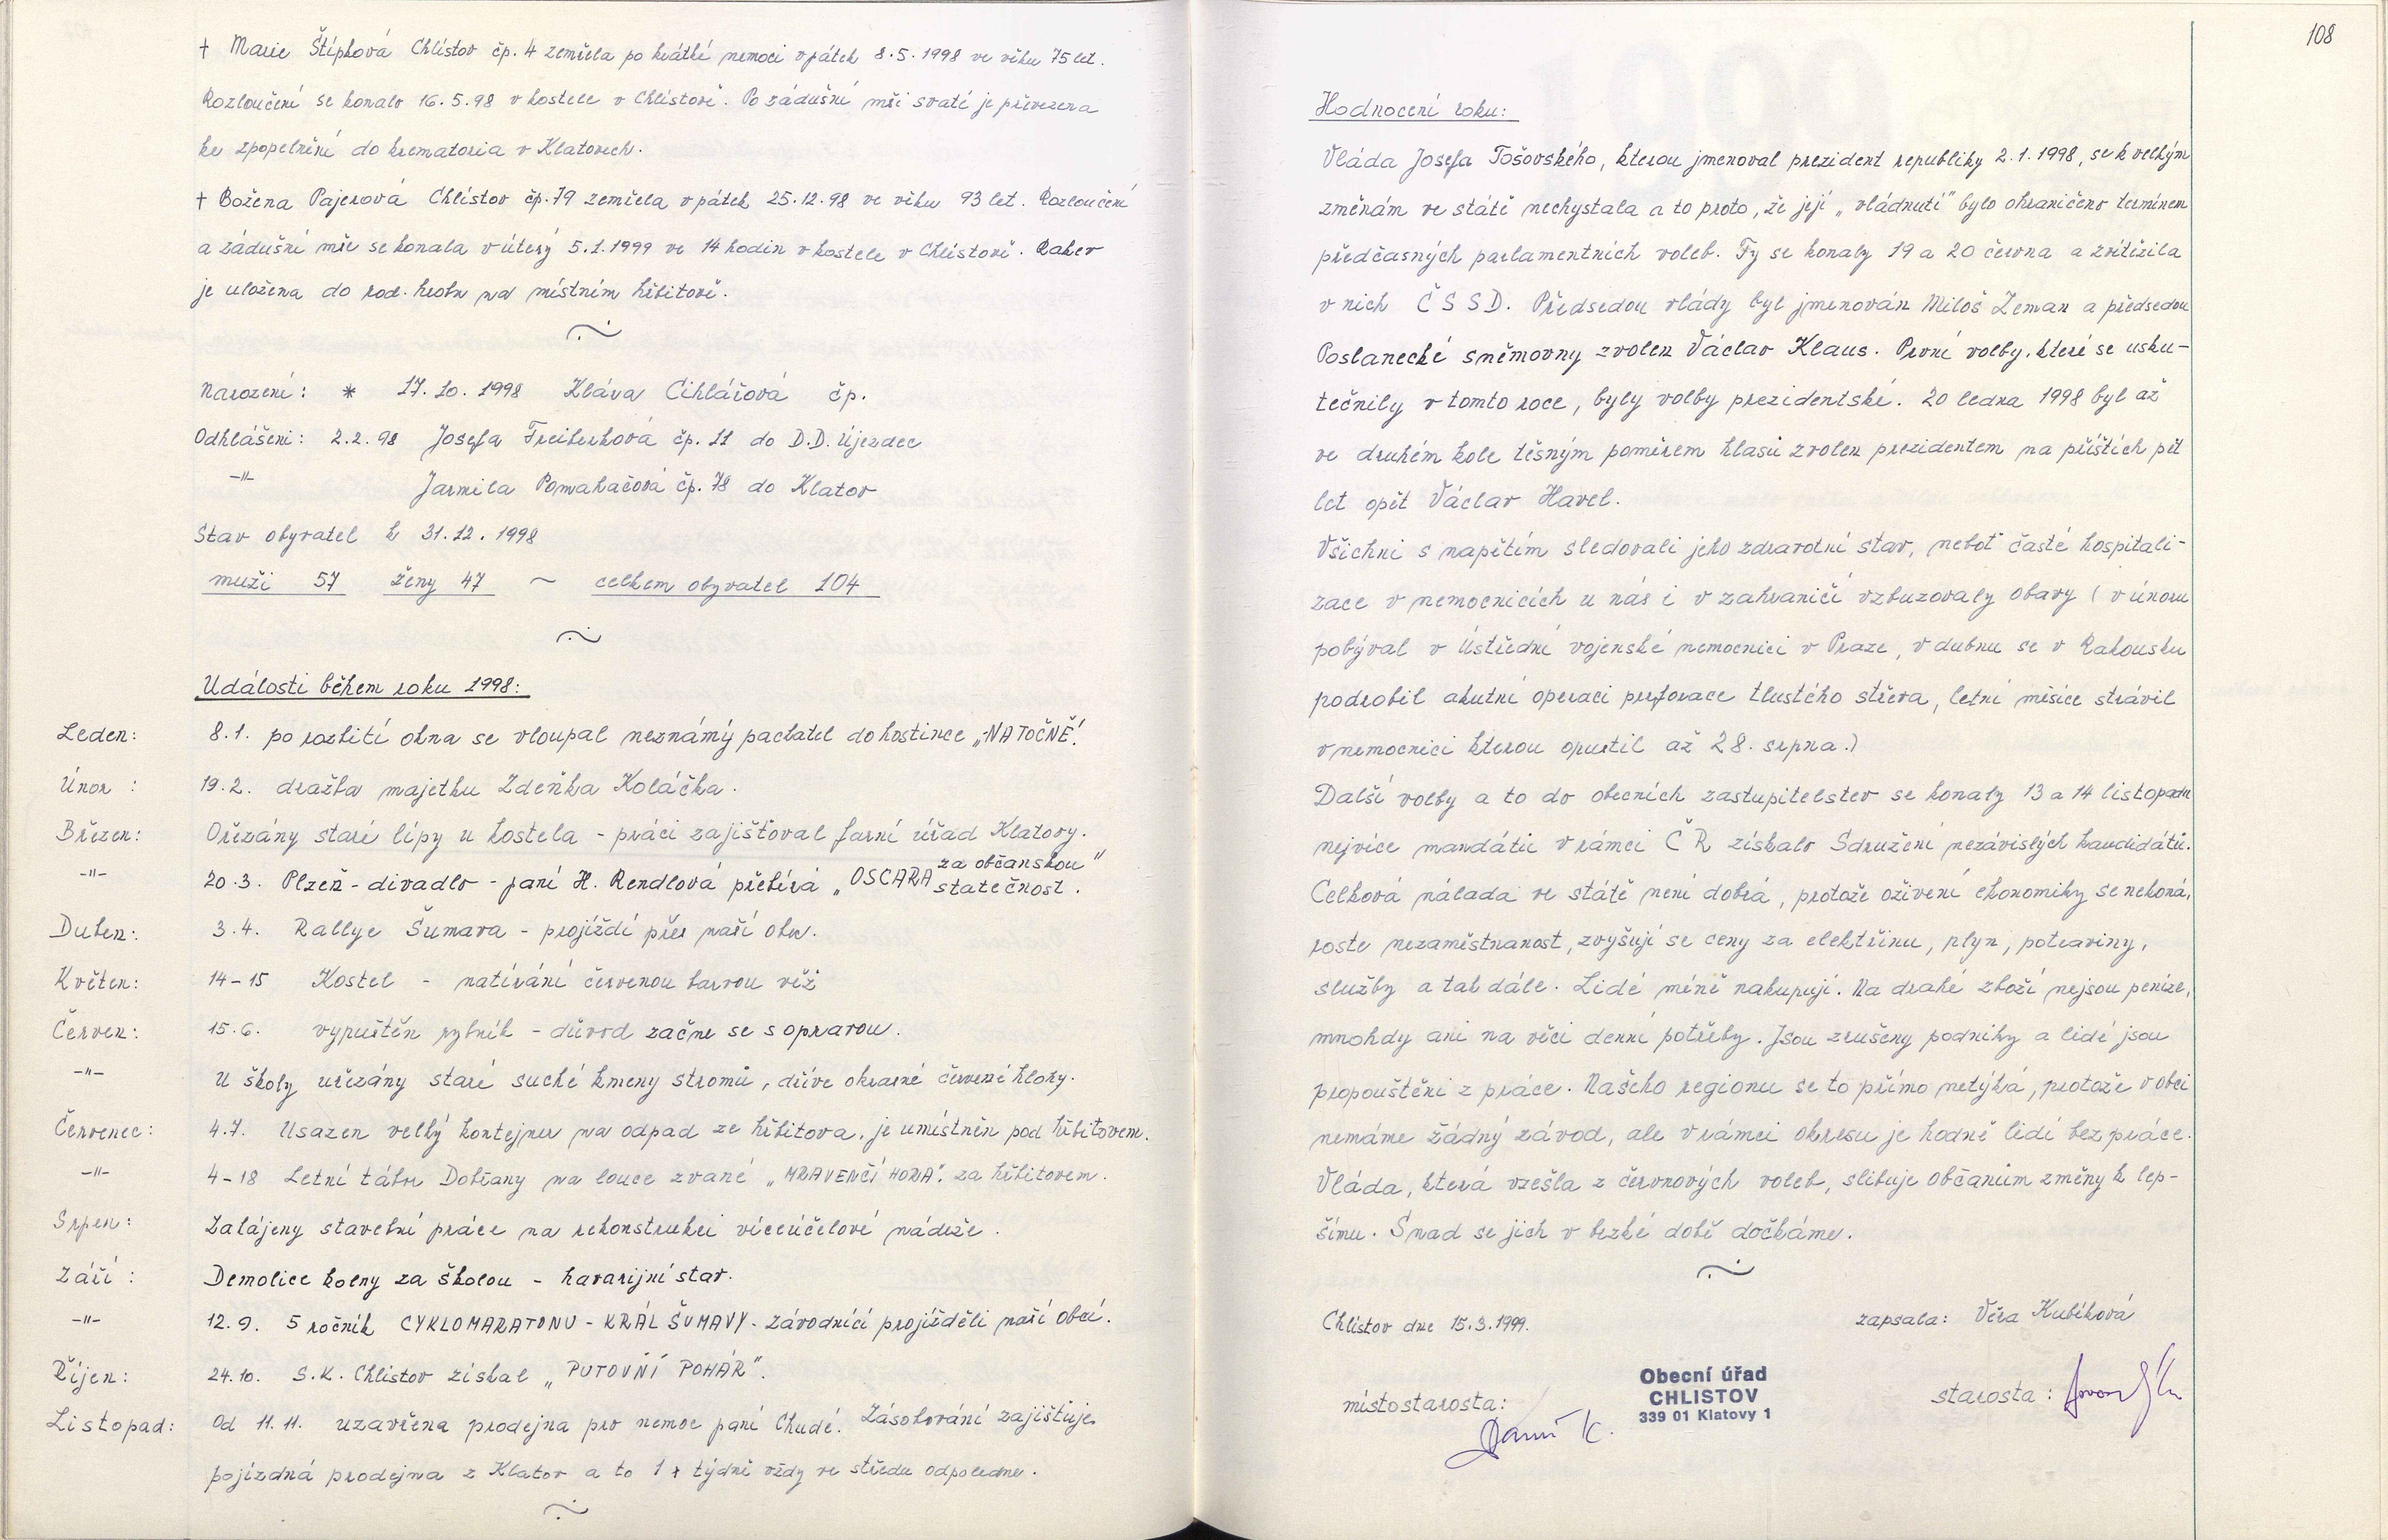 † Marie Štípková Chlistov čp. 4 zemřela po krátké nemoci v pátek 8.5.1998 ve věku 75 let.
Rozloučení se konalo 16.5.98 v kostele v Chlistově. Po zádušní mši svaté je převezena
ke zpopelnění do krematoria v Klatovech.
† Božena Pajerová Chlistov čp. 79 zemřela v pátek 25.12.98 ve věku 93 let. Rozloučení
a zádušní mše se konala v úterý 5.1.1999 ve 14 hodin v kostele v Chlistově. Rakev
je uložena do rod. hrobu na místním hřbitově.
Narození: * 17.10.1998 Klára Cihlářová čp.
Odhlášeni: 2.2.98 Josefa Treiberková čp. 11 do D.D. Újezdec
-"- Jarmila Pomahačová čp. 78 do Klatov
Stav obyvatel k 31.12.1998
muži 57 ženy 47 ~ celkem obyvatel 104
Události během roku 1998:
Leden: 8.1. po rozbití okna se vloupal neznámý pachatel do hostince „NA TOČNĚ".
Únor: 19.2. dražba majetku Zdeňka Koláčka.
Březen: Ořezány staré lípy u kostela - práci zajišťoval farní úřad Klatovy.
-"- 20.3. Plzeň - divadlo - paní H. Rendlová přebírá „OSCARA za občanskou statečnost".
Duben: 3.4. Rallye Šumava - projíždí přes naší obec.
Květen: 14-15 Kostel - natírání červenou barvou věž
Červen: 15.6. vypuštěn rybník - důvod začne se s opravou.
-"- U školy uřezány staré suché kmeny stromů, dříve okrasné červené hlohy.
Červenec: 4.7. Usazen velký kontejner na odpad ze hřbitova, je umístněn pod hřbitovem.
-"- 4-18 Letní tábor Dobřany na louce zvané „MRAVENČÍ HORA". za hřbitovem.
Srpen: Zahájeny stavební práce na rekonstrukci víceúčelové nádrže.
Září: Demolice kolny za školou - havarijní stav.
-"- 12.9. 5 ročník CYKLOMARATONU - KRÁL ŠUMAVY - závodníci projížděli naší obcí.
Říjen: 24.10. S.K. Chlistov získal „PUTOVNÍ POHÁR".
Listopad: Od 11.11. uzavřena prodejna pro nemoc paní Chudé. Zásobování zajišťuje
pojízdná prodejna z Klatov a to 1 x týdně vždy ve středu odpoledne.
108
Hodnocení roku:
Vláda Josefa Tošovského, kterou jmenoval prezident republiky 2.1.1998, se k velkým
změnám ve státě nechystala a to proto, že její „vládnutí" bylo ohraničeno termínem
předčasných parlamentních voleb. Ty se konaly 19 a 20 června a zvítězila
v nich ČSSD. Předsedou vlády byl jmenován Miloš Zeman a předsedou
Poslanecké sněmovny zvolen Václav Klaus. První volby, které se usku-
tečnily v tomto roce, byly volby prezidentské. 20 ledna 1998 byl až
ve druhém kole těsným poměrem hlasů zvolen prezidentem na příštích pět
let opět Václav Havel.
Všichni s napětím sledovali jeho zdravotní stav, neboť časté hospitali-
zace v nemocnicích u nás i v zahraničí vzbuzovaly obavy (v únoru
pobýval v Ústřední vojenské nemocnici v Praze, v dubnu se v Rakousku
podrobil akutní operaci perforace tlustého střeva, letní měsíce strávil
v nemocnici kterou opustil až 28. srpna.)
Další volby a to do obecních zastupitelstev se konaly 13 a 14 listopadu
nejvíce mandátů v rámci ČR získalo Sdružení nezávislých kandidátů.
Celková nálada ve státě není dobrá, protože oživení ekonomiky se nekoná,
roste nezaměstnanost, zvyšují se ceny za elektřinu, plyn, potraviny,
služby a tak dále. Lidé méně nakupují. Na drahé zboží nejsou peníze,
mnohdy ani na věci denní potřeby. Jsou zrušeny podniky a lidé jsou
propouštěni z práce. Našeho regionu se to přímo netýká, protože v obci
nemáme žádný závod, ale v rámci okresu je hodně lidí bez práce.
Vláda, která vzešla z červnových voleb, slibuje občanům změny k lep-
šímu. Snad se jich v brzké době dočkáme.
Chlistov dne 15.3.1999. zapsala: Věra Kubíková
místostarosta: starosta:
Obecní úřad
CHLISTOV
339 01 Klatovy 1